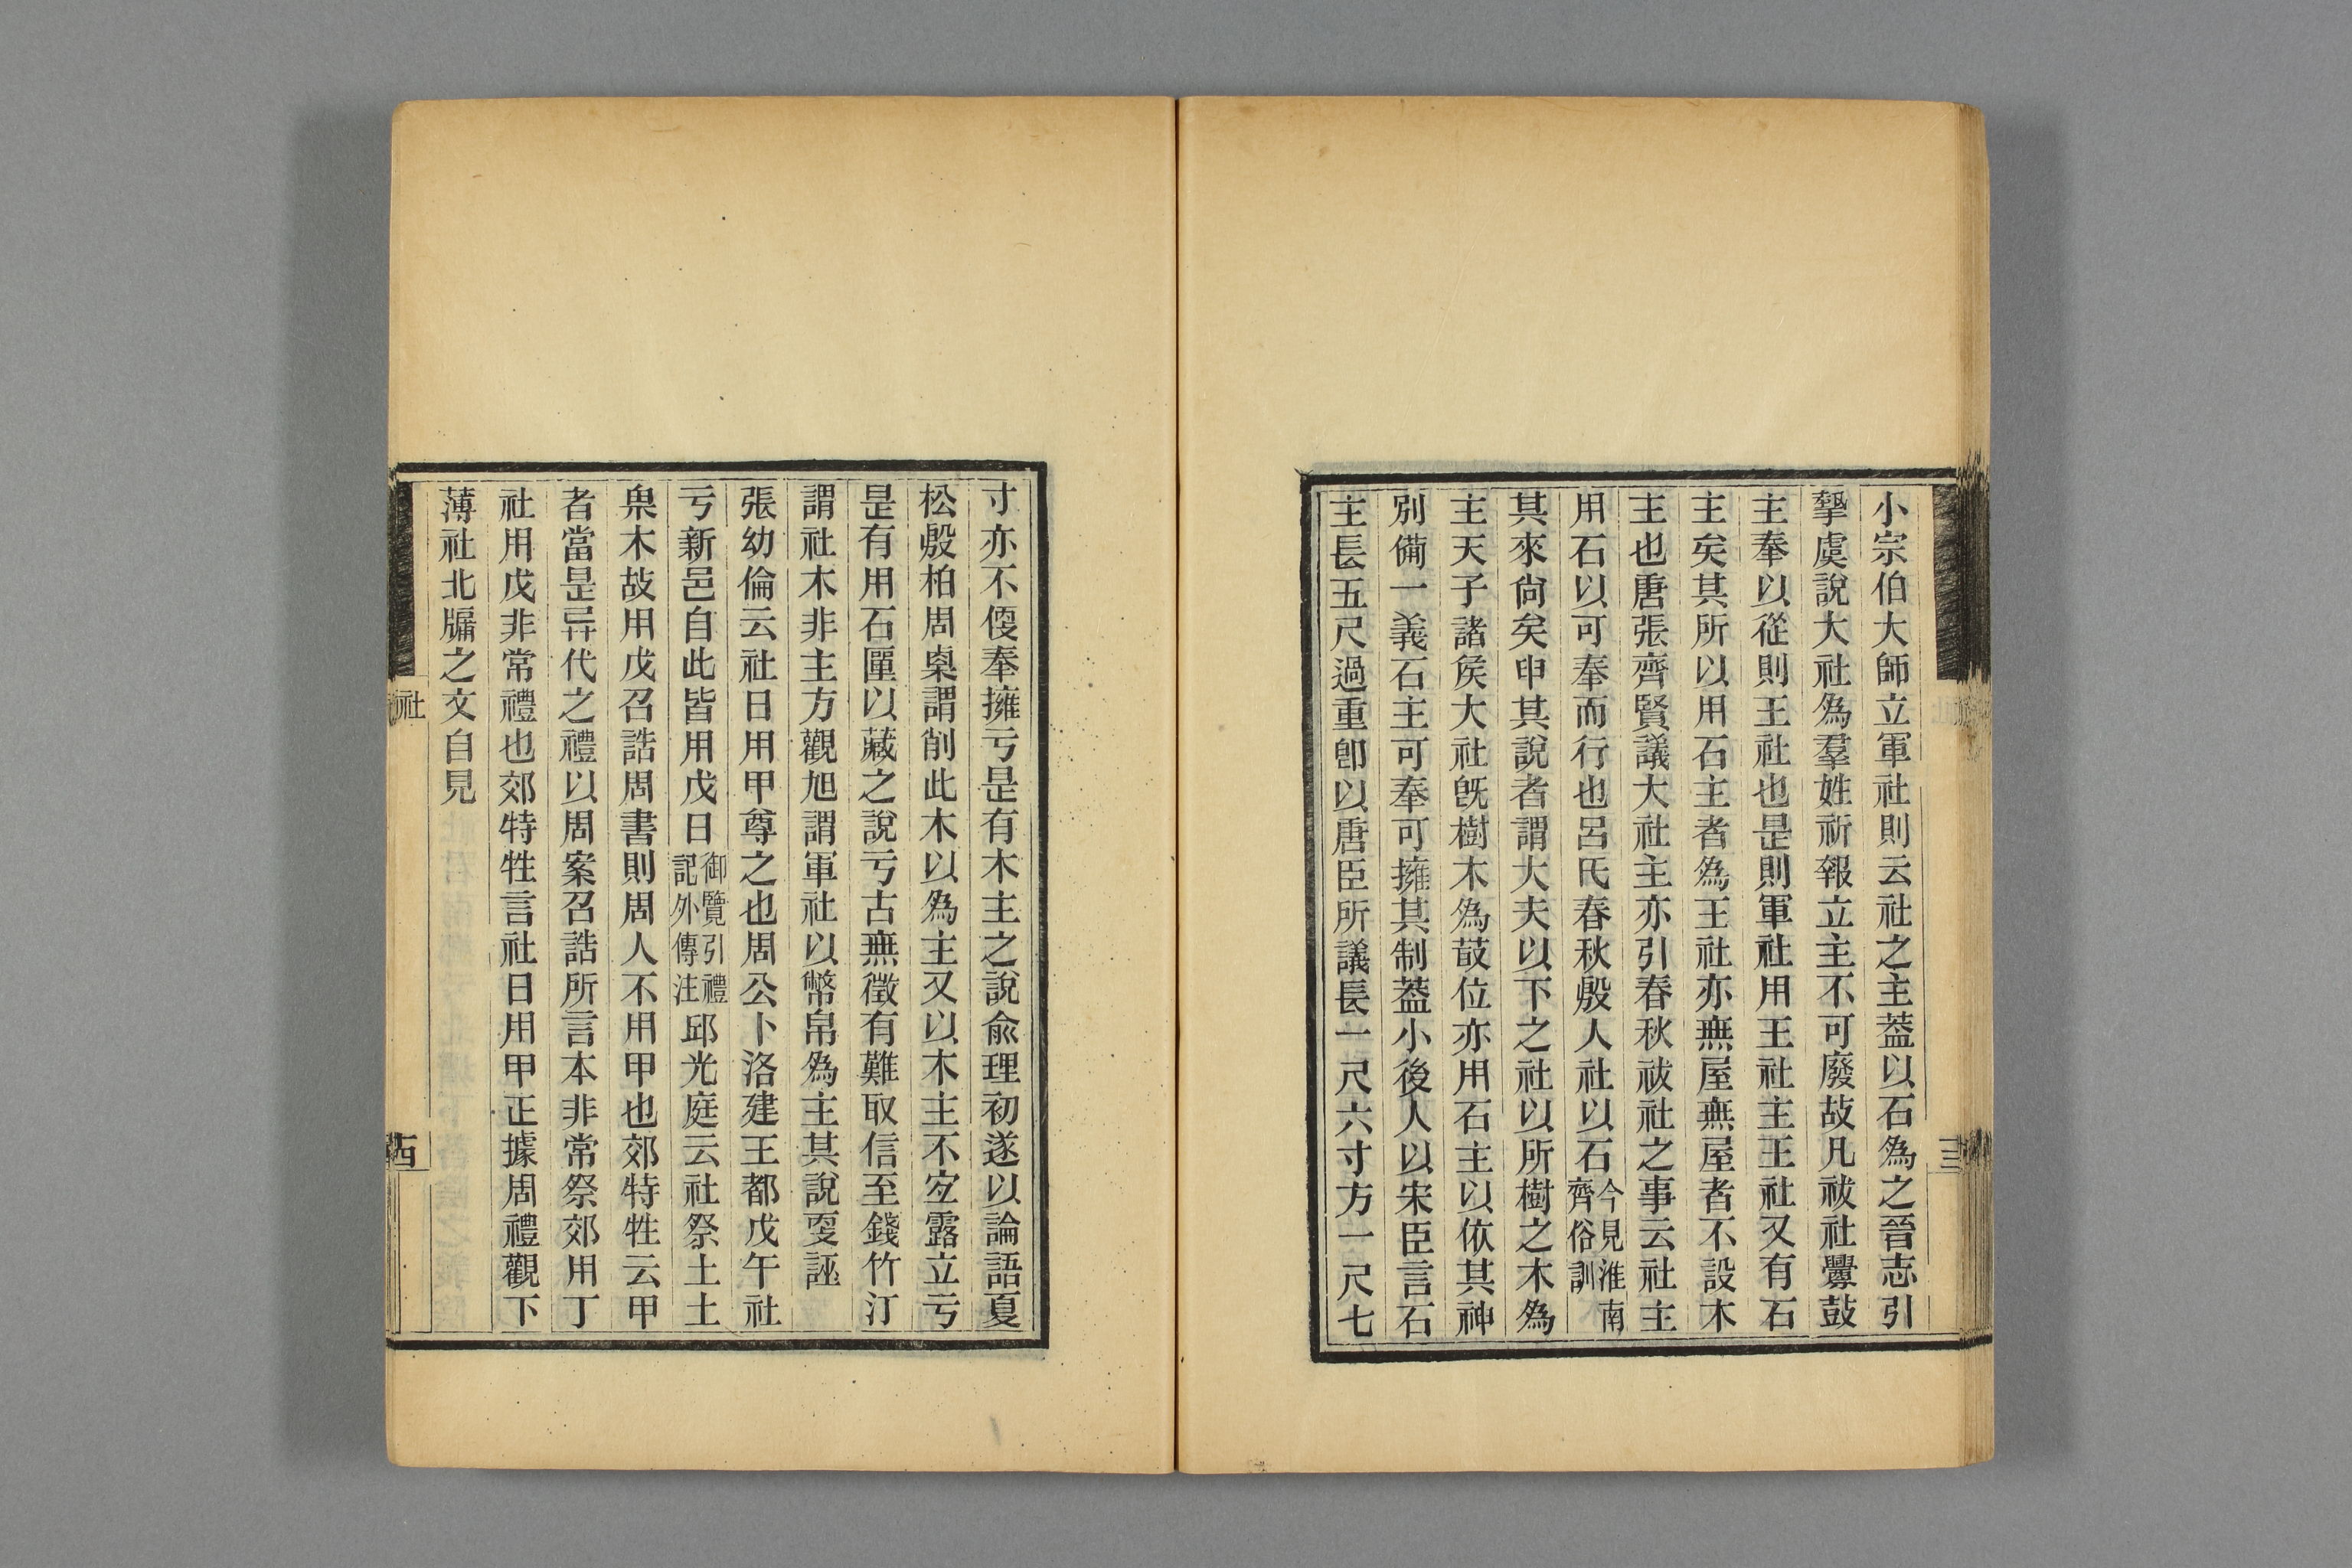 小宗伯大師立軍社則云社之主葢以石為之晉志引
摯虞說大社為羣姓祈報立主不可廢故凡祓社釁鼓
主奉以從則王社也是則軍社用王社主王社又有石
主矣其所以用石主者為王社亦無屋無屋者不設木
主也唐張齊賢議大社主亦引春秋祓社之事云社主
用石以可奉而行也呂氏春秋殷人社以石今見淮南齊俗訓
其來尙矣申其說者謂大夫以下之社以所樹之木為
主天子諸矦大社旣樹木為菆位亦用石主以依其神
別備一義石主可奉可擁其制葢小後人以宋臣言石
主長五尺過重卽以唐臣所議長一尺六寸方一尺七
寸亦不僾奉擁亏是有木主之說俞理初遂以論語夏
松殷柏周㮚謂削此木以為主又以木主不宐露立亏
是有用石匰以藏之說亏古無徵有難取信至錢竹汀
謂社木非主方觀旭謂軍社以幣帛為主其說㪅誣
張幼倫云社日用甲尊之也周公卜洛建王都戊午社
亏新邑自此皆用戊日御覽引禮記外傳注邱光庭云社祭土土
𣌭木故用戊召誥周書則周人不用甲也郊特牲云甲
者當是异代之禮以周案召誥所言本非常祭郊用丁
社用戊非常禮也郊特牲言社日用甲正據周禮觀下
薄社北牖之文自見
社